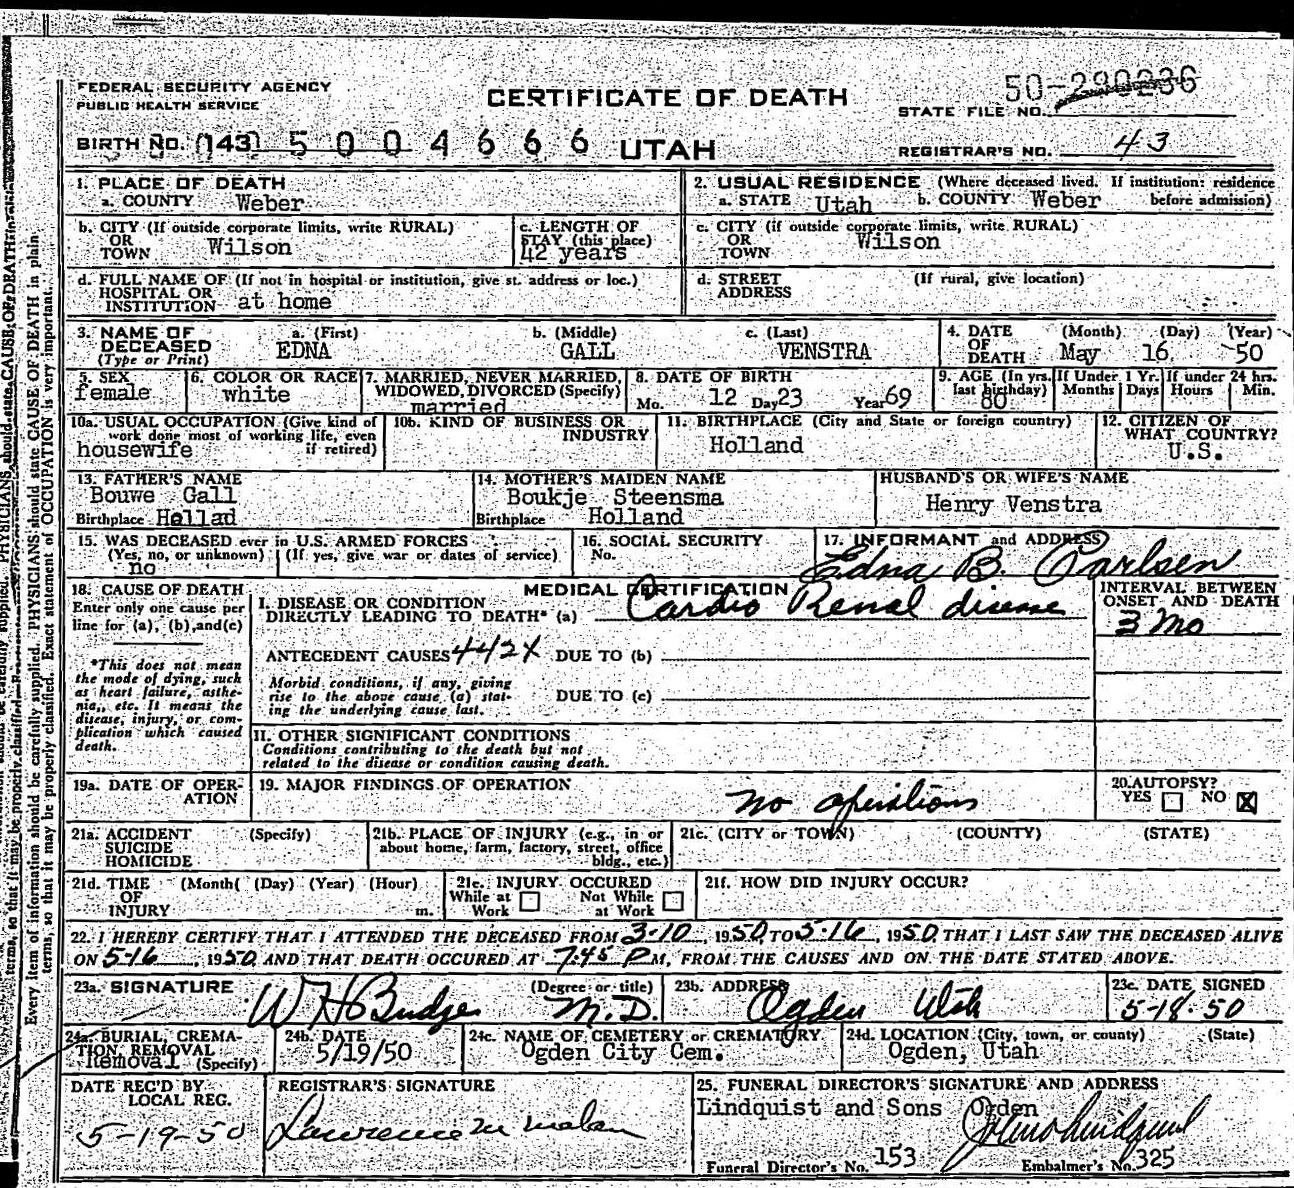 FEDERAL SECURITY AGENCY
PUBLIC HEALTH SERVICE
CERTIFICATE OF DEATH
50-290236
STATE FILE NO.
BIRTH NO. (143) 5 0 0 4 6 6 6 UTAH
REGISTRAR'S NO. 43
1. PLACE OF DEATH
a. COUNTY Weber
2. USUAL RESIDENCE (Where deceased lived. If institution: residence before admission)
a. STATE Utah b. COUNTY Weber
b. CITY (If outside corporate limits, write RURAL)
OR
TOWN Wilson
c. LENGTH OF
STAY (this place)
42 years
c. CITY (if outside corporate limits, write RURAL)
OR
TOWN Wilson
d. FULL NAME OF (If not in hospital or institution, give st. address or loc.)
HOSPITAL OR
INSTITUTION at home
d. STREET (If rural, give location)
ADDRESS
3. NAME OF
DECEASED
(Type or Print)
a. (First) b. (Middle) c. (Last)
EDNA GALL VENSTRA
4. DATE (Month) (Day) (Year)
OF
DEATH May 16 50
5. SEX
female
6. COLOR OR RACE
white
7. MARRIED, NEVER MARRIED,
WIDOWED, DIVORCED (Specify)
married
8. DATE OF BIRTH
Mo. 12 Day 23 Year 69
9. AGE (In yrs. last birthday)
80
If Under 1 Yr. Months Days
If under 24 hrs. Hours Min.
10a. USUAL OCCUPATION (Give kind of
work done most of working life, even
if retired)
housewife
10b. KIND OF BUSINESS OR
INDUSTRY
11. BIRTHPLACE (City and State or foreign country)
Holland
12. CITIZEN OF
WHAT COUNTRY?
U.S.
13. FATHER'S NAME
Bouwe Gall
Birthplace Hollad
14. MOTHER'S MAIDEN NAME
Boukje Steensma
Birthplace Holland
HUSBAND'S OR WIFE'S NAME
Henry Venstra
15. WAS DECEASED ever in U.S. ARMED FORCES
(Yes, no, or unknown) (If yes, give war or dates of service)
no
16. SOCIAL SECURITY
No.
17. INFORMANT and ADDRESS
Edna B. Carlsen
18. CAUSE OF DEATH
Enter only one cause per
line for (a), (b), and (c)
*This does not mean
the mode of dying, such
as heart failure, asthe-
nia, etc. It means the
disease, injury, or com-
plication which caused
death.
MEDICAL CERTIFICATION
I. DISEASE OR CONDITION
DIRECTLY LEADING TO DEATH* (a) Cardio Renal disease
ANTECEDENT CAUSES 442X DUE TO (b)
Morbid conditions, if any, giving
rise to the above cause (a) stat-
ing the underlying cause last.
DUE TO (c)
II. OTHER SIGNIFICANT CONDITIONS
Conditions contributing to the death but not
related to the disease or condition causing death.
INTERVAL BETWEEN
ONSET AND DEATH
3 Mo
19a. DATE OF OPER-
ATION
19. MAJOR FINDINGS OF OPERATION
no operations
20. AUTOPSY?
YES NO X
21a. ACCIDENT (Specify)
SUICIDE
HOMICIDE
21b. PLACE OF INJURY (e.g., in or
about home, farm, factory, street, office
bldg., etc.)
21c. (CITY or TOWN) (COUNTY) (STATE)
21d. TIME (Month( (Day) (Year) (Hour)
OF
INJURY m.
21e. INJURY OCCURED
While at Work Not While at Work
21f. HOW DID INJURY OCCUR?
22. I HEREBY CERTIFY THAT I ATTENDED THE DECEASED FROM 3-10, 1950, TO 5-16, 1950, THAT I LAST SAW THE DECEASED ALIVE
ON 5-16, 1950, AND THAT DEATH OCCURED AT 7:45 P M., FROM THE CAUSES AND ON THE DATE STATED ABOVE.
23a. SIGNATURE (Degree or title)
W H Budge M.D.
23b. ADDRESS
Ogden Utah
23c. DATE SIGNED
5-18-50
24a. BURIAL, CREMA-
TION, REMOVAL
Removal (Specify)
24b. DATE
5/19/50
24c. NAME OF CEMETERY or CREMATORY
Ogden City Cem.
24d. LOCATION (City, town, or county) (State)
Ogden, Utah
DATE REC'D BY
LOCAL REG.
5-19-50
REGISTRAR'S SIGNATURE
Lawrence M Malan
25. FUNERAL DIRECTOR'S SIGNATURE AND ADDRESS
Lindquist and Sons Ogden
Funeral Director's No. 153 Embalmer's No. 325
Every item of information should be carefully supplied. PHYSICIANS should state CAUSE OF DEATH in plain
terms, so that it may be properly classified. Exact statement of OCCUPATION is very important.